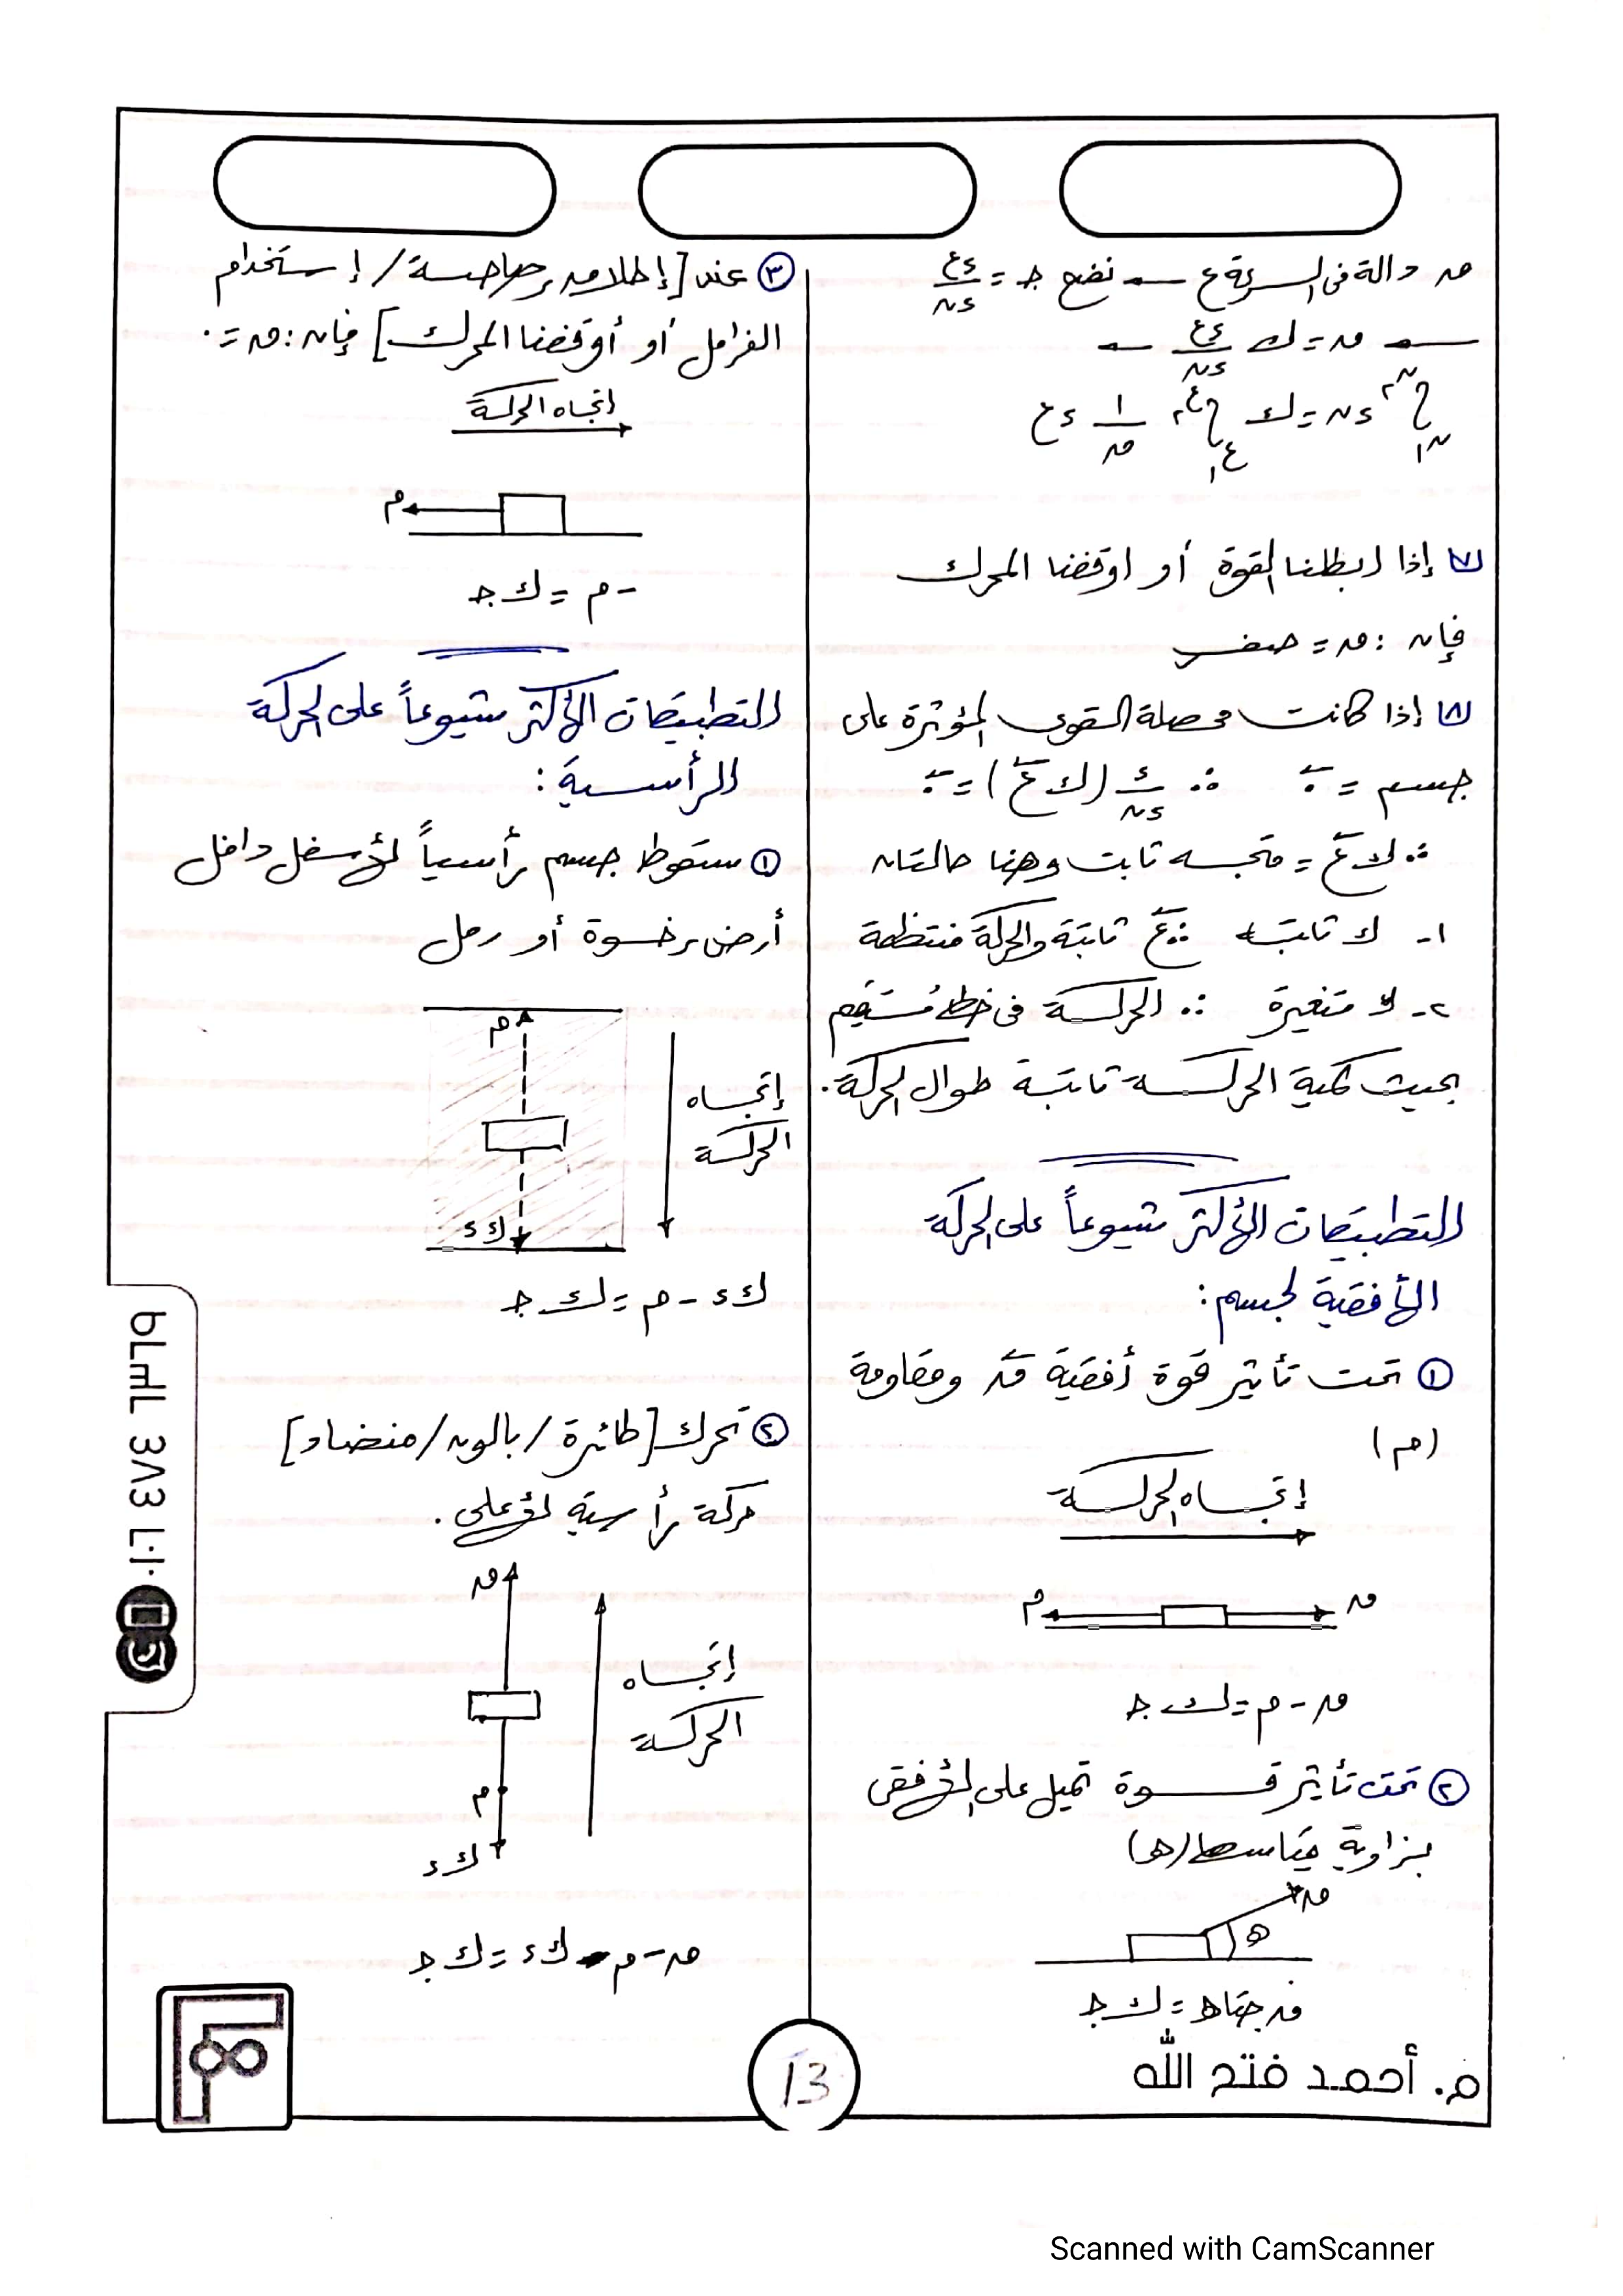 ق دالة فى السرعة ع ← نضع جـ = دع/دن
← ق = ك دع/دن ←
∫ن١ ن٢ دن = ك ∫ع١ ع٢ ١/ق دع
٧ إذا ابطلنا القوة أو اوقفنا المحرك
فإن : ق = صفر
٨ إذا كانت محصلة القوى المؤثرة على
جسم = ٠ ∴ د/دن (ك ع) = ٠
∴ ك ع = متجه ثابت وهنا حالتان
١- ك ثابته ∴ ع ثابتة والحركة منتظمة
٢- ك متغيرة ∴ الحركة فى خط مستقيم
بحيث كمية الحركة ثابتة طوال الحركة.
التطبيقات الأكثر شيوعاً على الحركة
الأفقية لجسم :
① تحت تأثير قوة أفقية ق ومقاومة
(م)
إتجاه الحركة
م ق
ق - م = ك جـ
② تحت تأثير قوة تميل على الأفقى
بزاوية قياسها (هـ)
ق
هـ
ق جتاهـ = ك جـ
③ عند [إطلاق رصاصة / إستخدام
الفرامل أو أوقفنا المحرك] فإن : ق = ٠
إتجاه الحركة
م
- م = ك جـ
التطبيقات الأكثر شيوعاً على الحركة
الرأسية :
① سقوط جسم رأسياً لأسفل داخل
أرض رخوة أو رمل
م
إتجاه
الحركة
ك ء
ك ء - م = ك جـ
② تحرك [طائرة / بالون / منضاد]
حركة رأسية لأعلى .
ق
إتجاه
الحركة
م
ك ء
ق - م - ك ء = ك جـ
م. أحمد فتح الله
13
Scanned with CamScanner